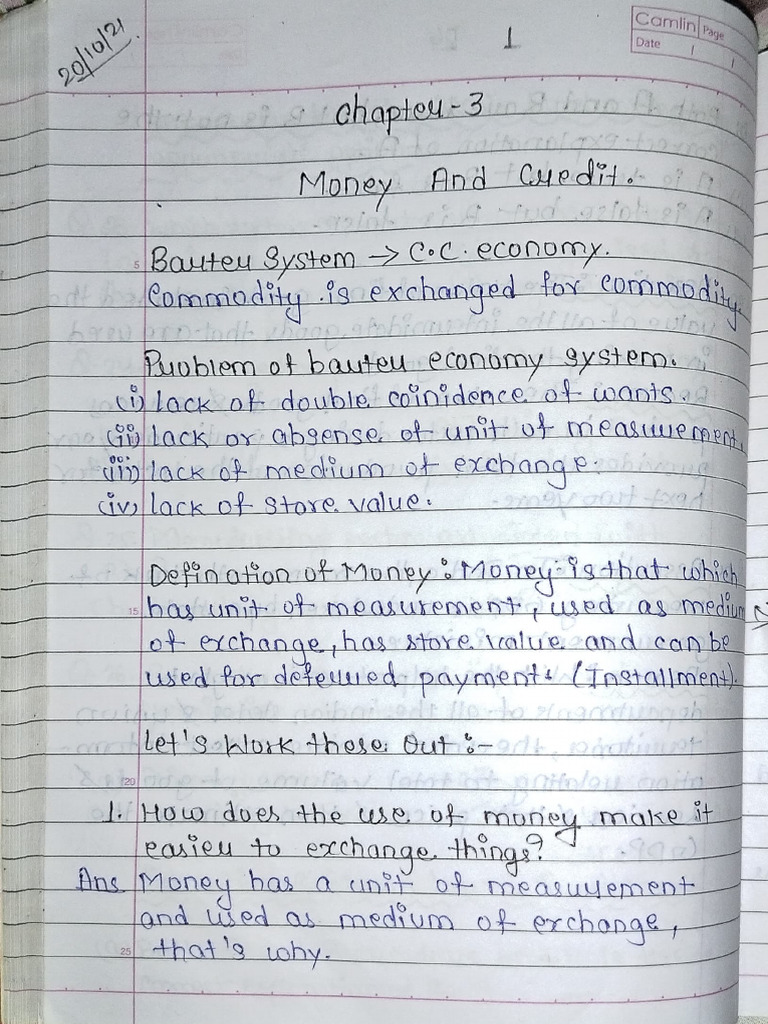 20/10/21
1
Camlin Page
Date / /
Chapter-3
Money And Credit.
5 Barter System → C.C. economy.
Commodity is exchanged for commodity.
Problem of barter economy system.
(i) lack of double coinidence of wants.
(ii) lack or absense of unit of measurement.
(iii) lack of medium of exchange.
(iv) lack of store value.
Defination of Money: Money is that which
15 has unit of measurement, used as medium
of exchange, has store value and can be
used for deferred payment. (Installment).
Let's Work these Out :-
20
1. How does the use of money make it
easier to exchange things?
Ans Money has a unit of measurement
and used as medium of exchange,
25 that's why.